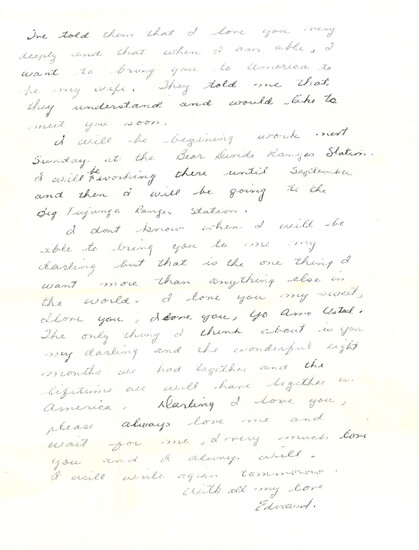 I've told them that I love you very
deeply and that when I am able, I
want to bring you to America to
be my wife. They told me that
they understand and would like to
meet you soon.
I will be begining work next
Sunday at the Bear Divide Ranger Station.
I will be working there until September
and then I will be going to the
Big Tujunga Ranger Station.
I dont know when I will be
able to bring you to me my
darling but that is the one thing I
want more than anything else in
the world. I love you my sweet,
I love you, I love you, Yo Amo Usted.
The only thing I think about is you
my darling and the wonderful eight
months we had together and the
lifetime we will have together in
America. Darling I love you,
please always love me and
wait for me, I very much love
you and I always will.
I will write again tommorow.
With all my love
Edward.